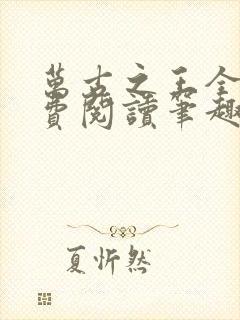 萬古之王全
費閱讀筆趣
夏忻然